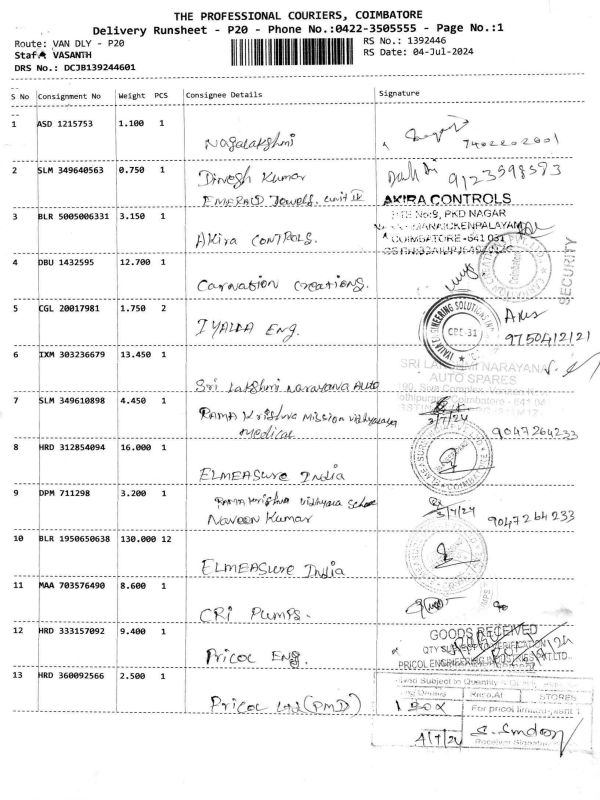 THE PROFESSIONAL COURIERS, COIMBATORE
Delivery Runsheet - P20 - Phone No.:0422-3505555 - Page No.:1
Route: VAN DLY - P20
RS No.: 1392446
Staff VASANTH
RS Date: 04-Jul-2024
DRS No.: DCJB139244601
S No Consignment No Weight PCS Consignee Details Signature
1 ASD 1215753 1.100 1
Nagalakshmi
7402202601
2 SLM 349640563 0.750 1
Dinesh Kumar 9123598593
EMERALD Jewels. unit IV AKIRA CONTROLS
3 BLR 5005006331 3.150 1
SITE No:9, PKD NAGAR
AKira CONTROLS.
COIMBATORE-641 031
4 DBU 1432595 12.700 1
Carnation Creations.
SECURITY
5 CGL 20017981 1.750 2
IYALIA Eng. CPC-31 9750412121
6 IXM 303236679 13.450 1
SRI LAKSHMI NARAYANA
AUTO SPARES
Sri Lakshmi Narayana Auto
7 SLM 349610898 4.450 1
Coimbatore - 641 04
RAMA Krishna Mission vidhyalaya 3/7/24
medical 9047264233
8 HRD 312854094 16.000 1
ELMEASURE India
9 DPM 711298 3.200 1
RAMA Krishna Vidhyala School 3/7/24
Naveen Kumar 9047264233
10 BLR 1950650638 130.000 12
ELMEASURE India
11 MAA 703576490 8.600 1
CRI PUMPS.
12 HRD 333157092 9.400 1
GOODS RECEIVED
QTY SUBJECT TO VERIFICATION
Pricol ENg. PRICOL ENGINEERING INDUSTRIES PVT.LTD.,
13 HRD 360092566 2.500 1
Subject to Quantity & Quality
Recd.At STORES
Pricol Ltd (PMD) 1 BOX For pricol limited-plant 1
4/7/24
Receiver Signature